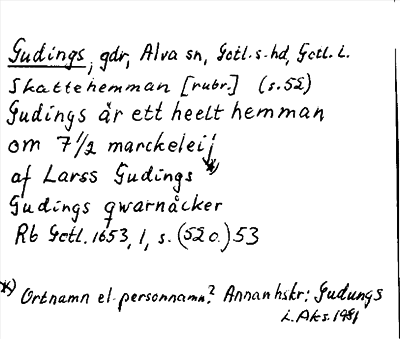 Gudings, gdr, Alva sn, Gotl. s. hd, Gotl. l.
Skattehemman [rubr.] (s. 52)
Gudings är ett heelt hemman
om 7 1/2 marckeleij
af Larss Gudings *)
Gudings qwarnåcker
Rb Gotl. 1653, 1, s. (52 o.) 53
*) Ortnamn el. personnamn? Annan hskr: Gudungs
i. Aks. 1981